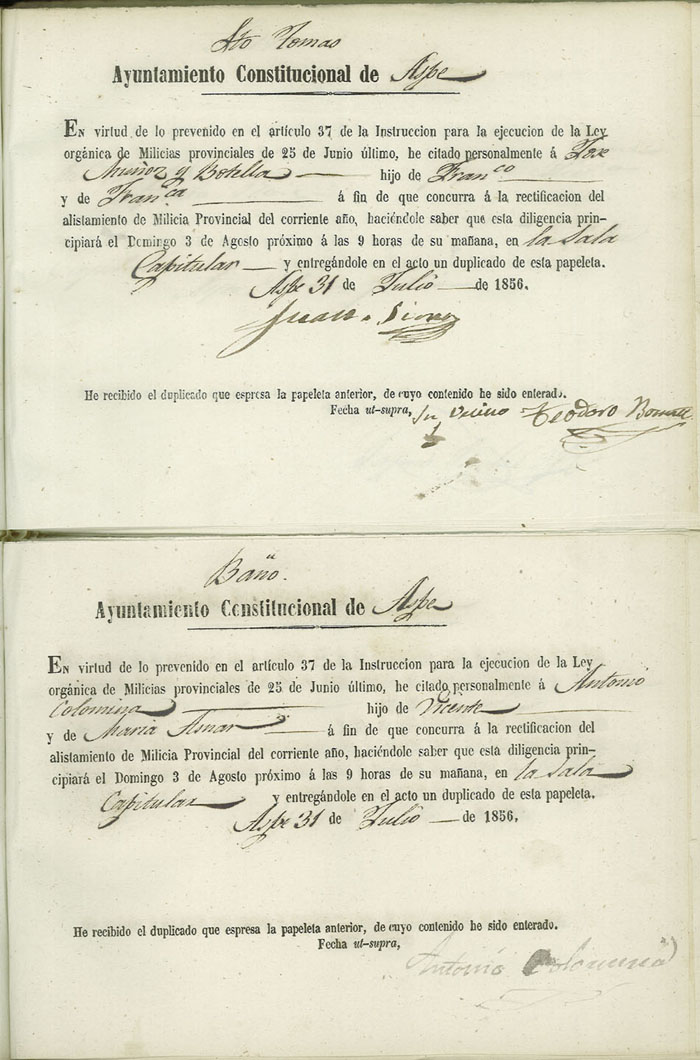 Sto Tomas
Ayuntamiento Constitucional de Aspe
EN virtud de lo prevenido en el artículo 37 de la Instruccion para la ejecucion de la Ley
orgánica de Milicias provinciales de 25 de Junio último, he citado personalmente á Jose
Muñoz y Botella hijo de Franco
y de Franca á fin de que concurra á la rectificacion del
alistamiento de Milicia Provincial del corriente año, haciéndole saber que esta diligencia prin-
cipiará el Domingo 3 de Agosto próximo á las 9 horas de su mañana, en la Sala
Capitular y entregándole en el acto un duplicado de esta papeleta.
Aspe 31 de Julio de 1856.
Juan
He recibido el duplicado que espresa la papeleta anterior, de cuyo contenido he sido enterado.
Fecha ut-supra, Teodoro
Baño.
Ayuntamiento Constitucional de Aspe
EN virtud de lo prevenido en el artículo 37 de la Instruccion para la ejecucion de la Ley
orgánica de Milicias provinciales de 25 de Junio último, he citado personalmente á Antonio
Colomina hijo de Vicente
y de Maria Asnar á fin de que concurra á la rectificacion del
alistamiento de Milicia Provincial del corriente año, haciéndole saber que esta diligencia prin-
cipiará el Domingo 3 de Agosto próximo á las 9 horas de su mañana, en la Sala
Capitular y entregándole en el acto un duplicado de esta papeleta.
Aspe 31 de Julio de 1856.
He recibido el duplicado que espresa la papeleta anterior, de cuyo contenido he sido enterado.
Fecha ut-supra,
Antonio Colomina